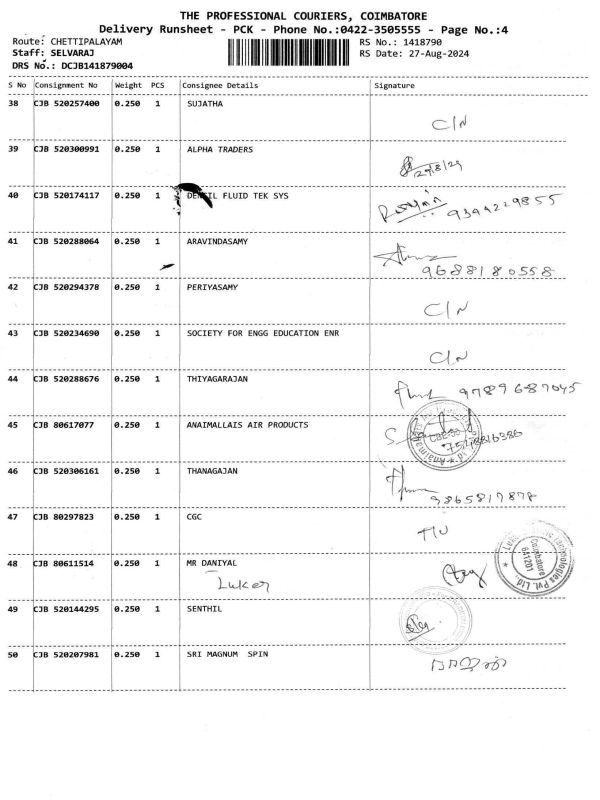 THE PROFESSIONAL COURIERS, COIMBATORE
Delivery Runsheet - PCK - Phone No.:0422-3505555 - Page No.:4
Route: CHETTIPALAYAM RS No.: 1418790
Staff: SELVARAJ RS Date: 27-Aug-2024
DRS No.: DCJB141879004
S No Consignment No Weight PCS Consignee Details Signature
38 CJB 520257400 0.250 1 SUJATHA
C/N
39 CJB 520300991 0.250 1 ALPHA TRADERS
40 CJB 520174117 0.250 1 FLUID TEK SYS
9394229855
41 CJB 520288064 0.250 1 ARAVINDASAMY
9688180558
42 CJB 520294378 0.250 1 PERIYASAMY
C/N
43 CJB 520234690 0.250 1 SOCIETY FOR ENGG EDUCATION ENR
C/N
44 CJB 520288676 0.250 1 THIYAGARAJAN
9789687045
45 CJB 80617077 0.250 1 ANAIMALLAIS AIR PRODUCTS
46 CJB 520306161 0.250 1 THANAGAJAN
9865817878
47 CJB 80297823 0.250 1 CGC
48 CJB 80611514 0.250 1 MR DANIYAL
Luker
Coimbatore
641201
Pvt. Ltd.
49 CJB 520144295 0.250 1 SENTHIL
50 CJB 520207981 0.250 1 SRI MAGNUM SPIN